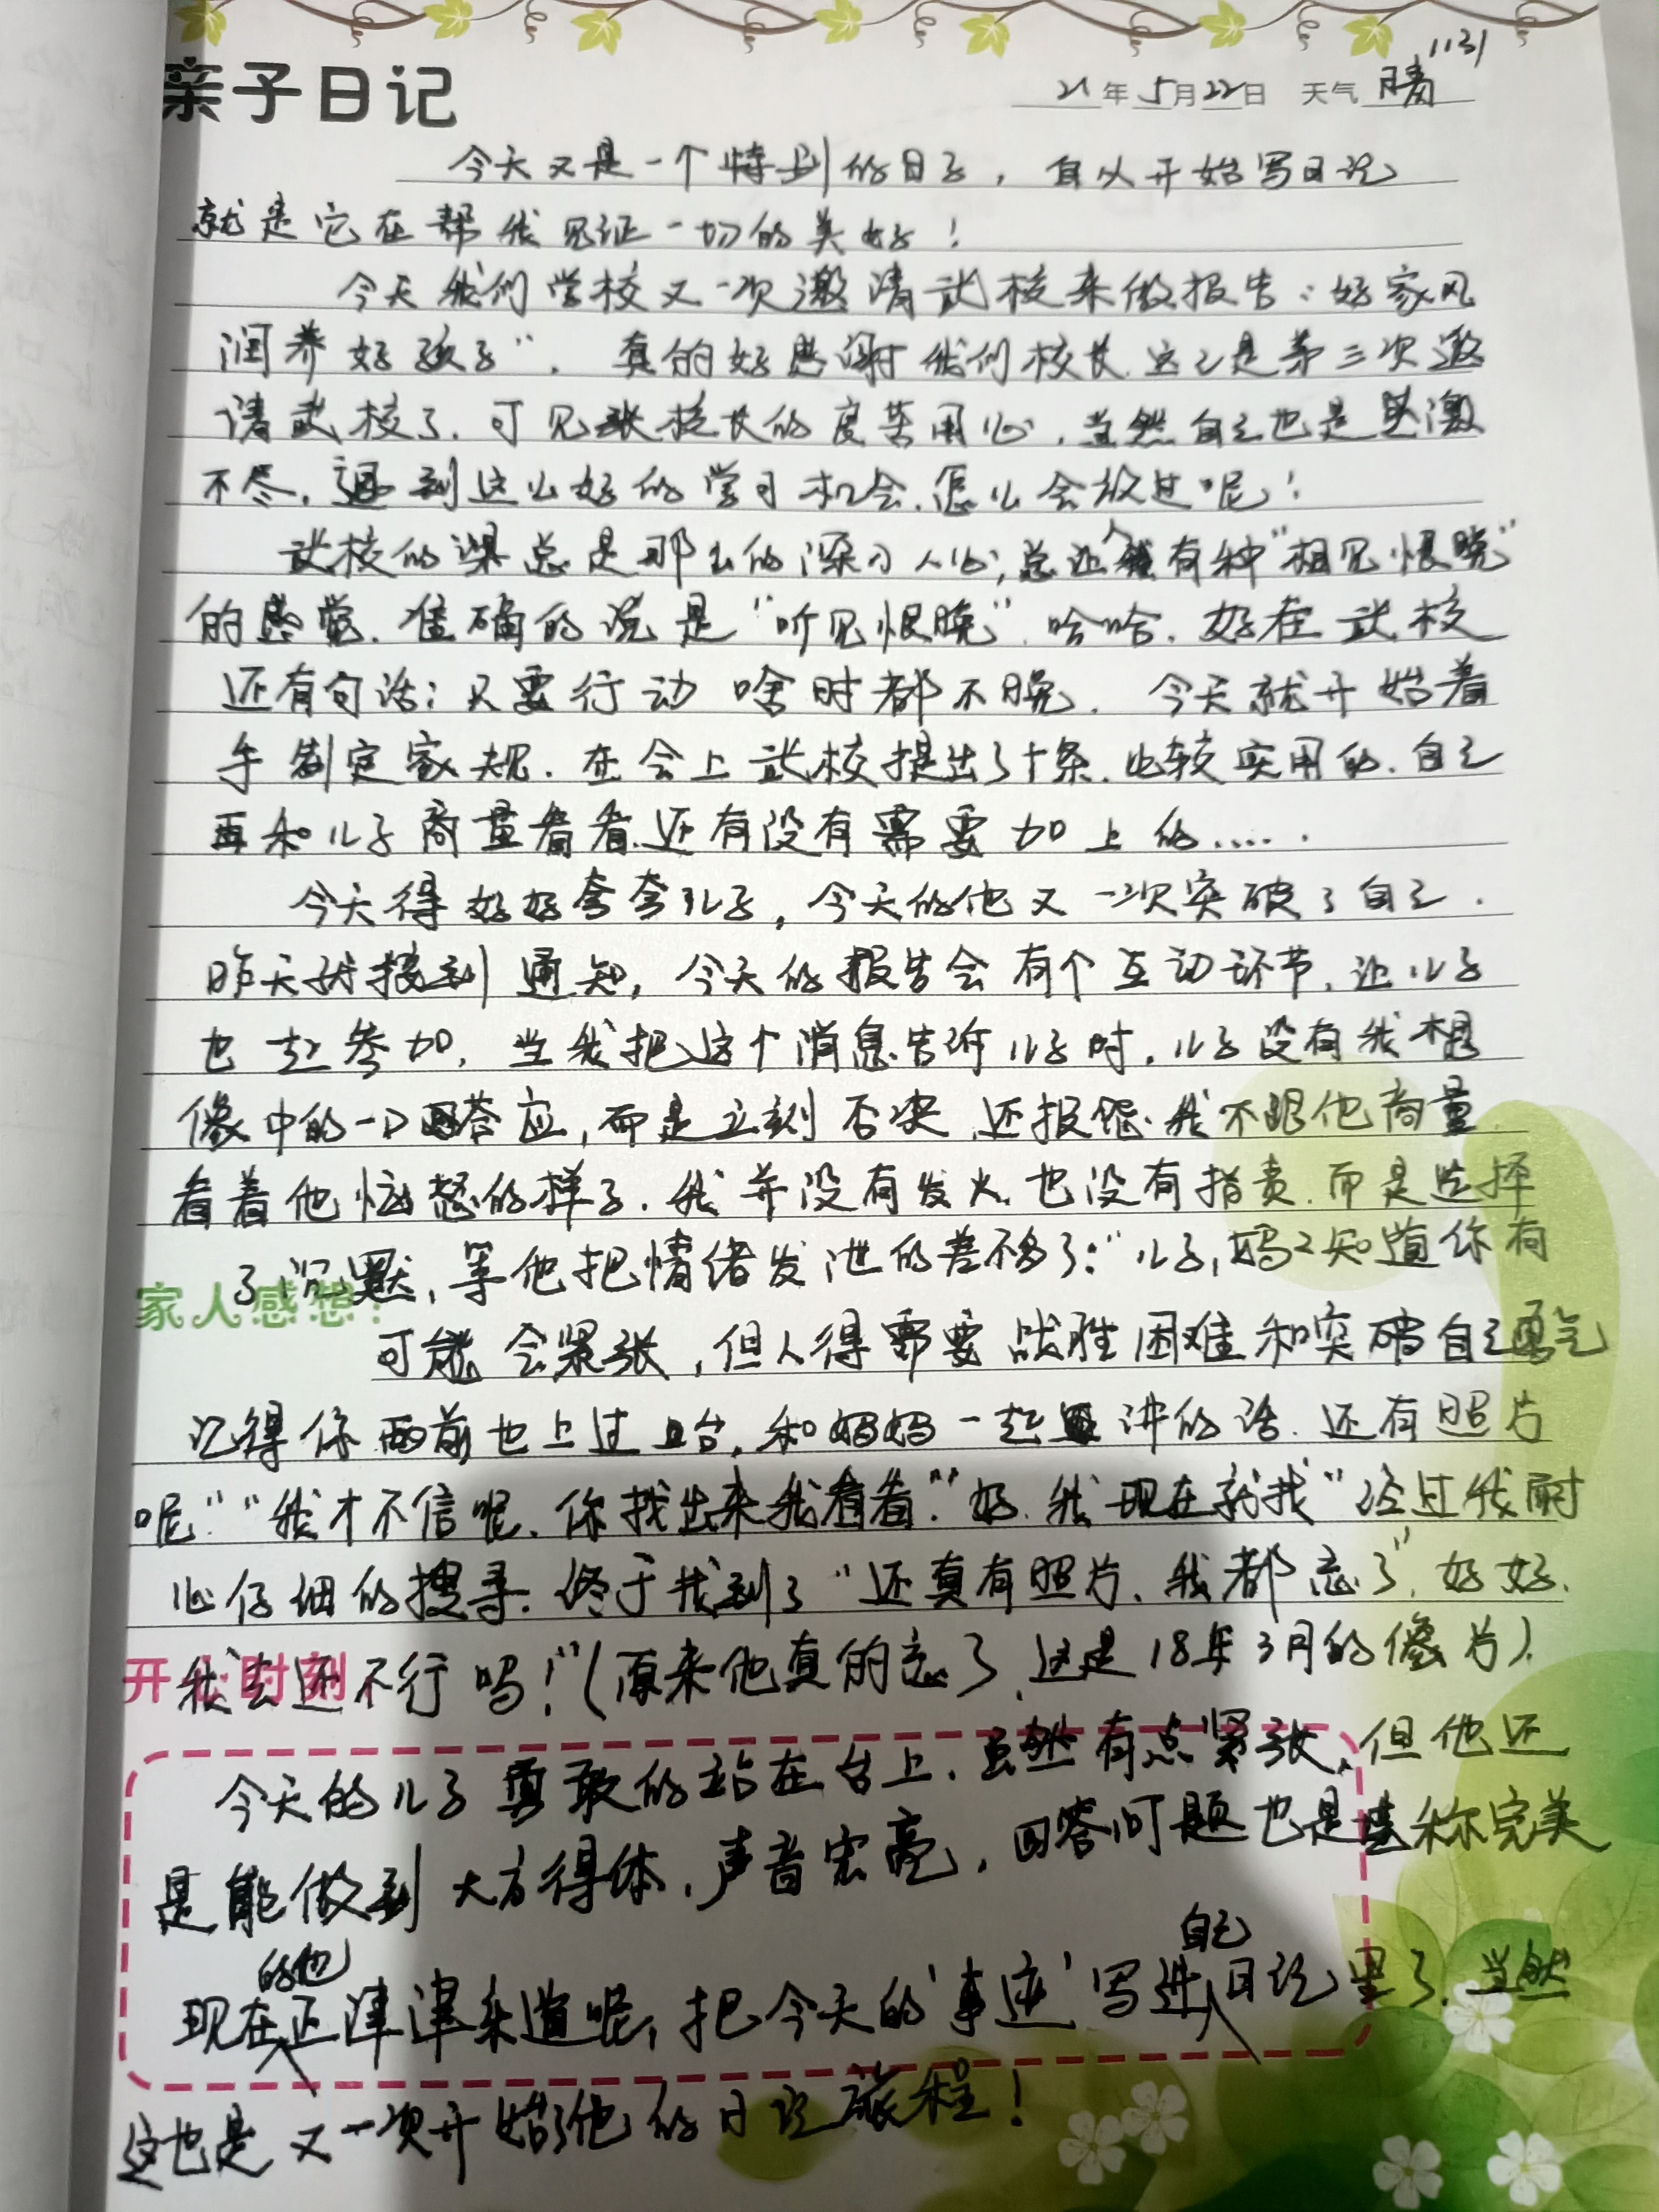 1131
亲子日记 21年5月22日 天气 晴
今天又是一个特别的日子，自从开始写日记
就是它在帮我见证一切的美好！
今天我们学校又一次邀请武校来做报告：好家风
润养好孩子"。真的好感谢我们校长.这已是第三次邀
请武校了.可见张校长的良苦用心，当然自己也是感激
不尽.遇到这么好的学习机会.怎么会放过呢！
武校的课总是那么的深入人心，总让人我有种"相见恨晚"
的感觉.准确的说是"听见恨晚".哈哈.好在武校
还有句话：只要行动 啥时都不晚.今天就开始着
手制定家规.在会上武校提出了十条.比较实用的.自己
再和儿子商量看看.还有没有需要加上的.....
今天得好好夸夸儿子，今天的他又一次突破了自己.
昨天就接到通知，今天的报告会有个互动环节.让儿子
也去参加，当我把这个消息告诉儿子时.儿子没有我想
像中的一口答应，而是立刻否决.还报怨.我不跟他商量.
看着他恼怒的样子.我并没有发火.也没有指责.而是选择
了沉默，等他把情绪发泄的差不多了："儿子，妈妈知道你有
家人感想：
可能会紧张，但人得需要战胜困难和突破自己勇气
记得你两前也上过台，和妈妈一起讲的话.还有照片
呢""我才不信呢.你找出来我看看.""好.我现在就找"经过我耐
心仔细的搜寻.终于找到了"还真有照片.我都忘了".好好.
开心时刻
我去还不行吗！"（原来他真的忘了.这是18年3月的像片）.
今天的儿子勇敢的站在台上.虽然有点紧张，但他还
是能做到大方得体.声音宏亮，回答问题也是堪称完美
现在的他正津津乐道呢，把今天的'事迹'写进自己日记里了.当然
这也是又一次开始了他的日记旅程！